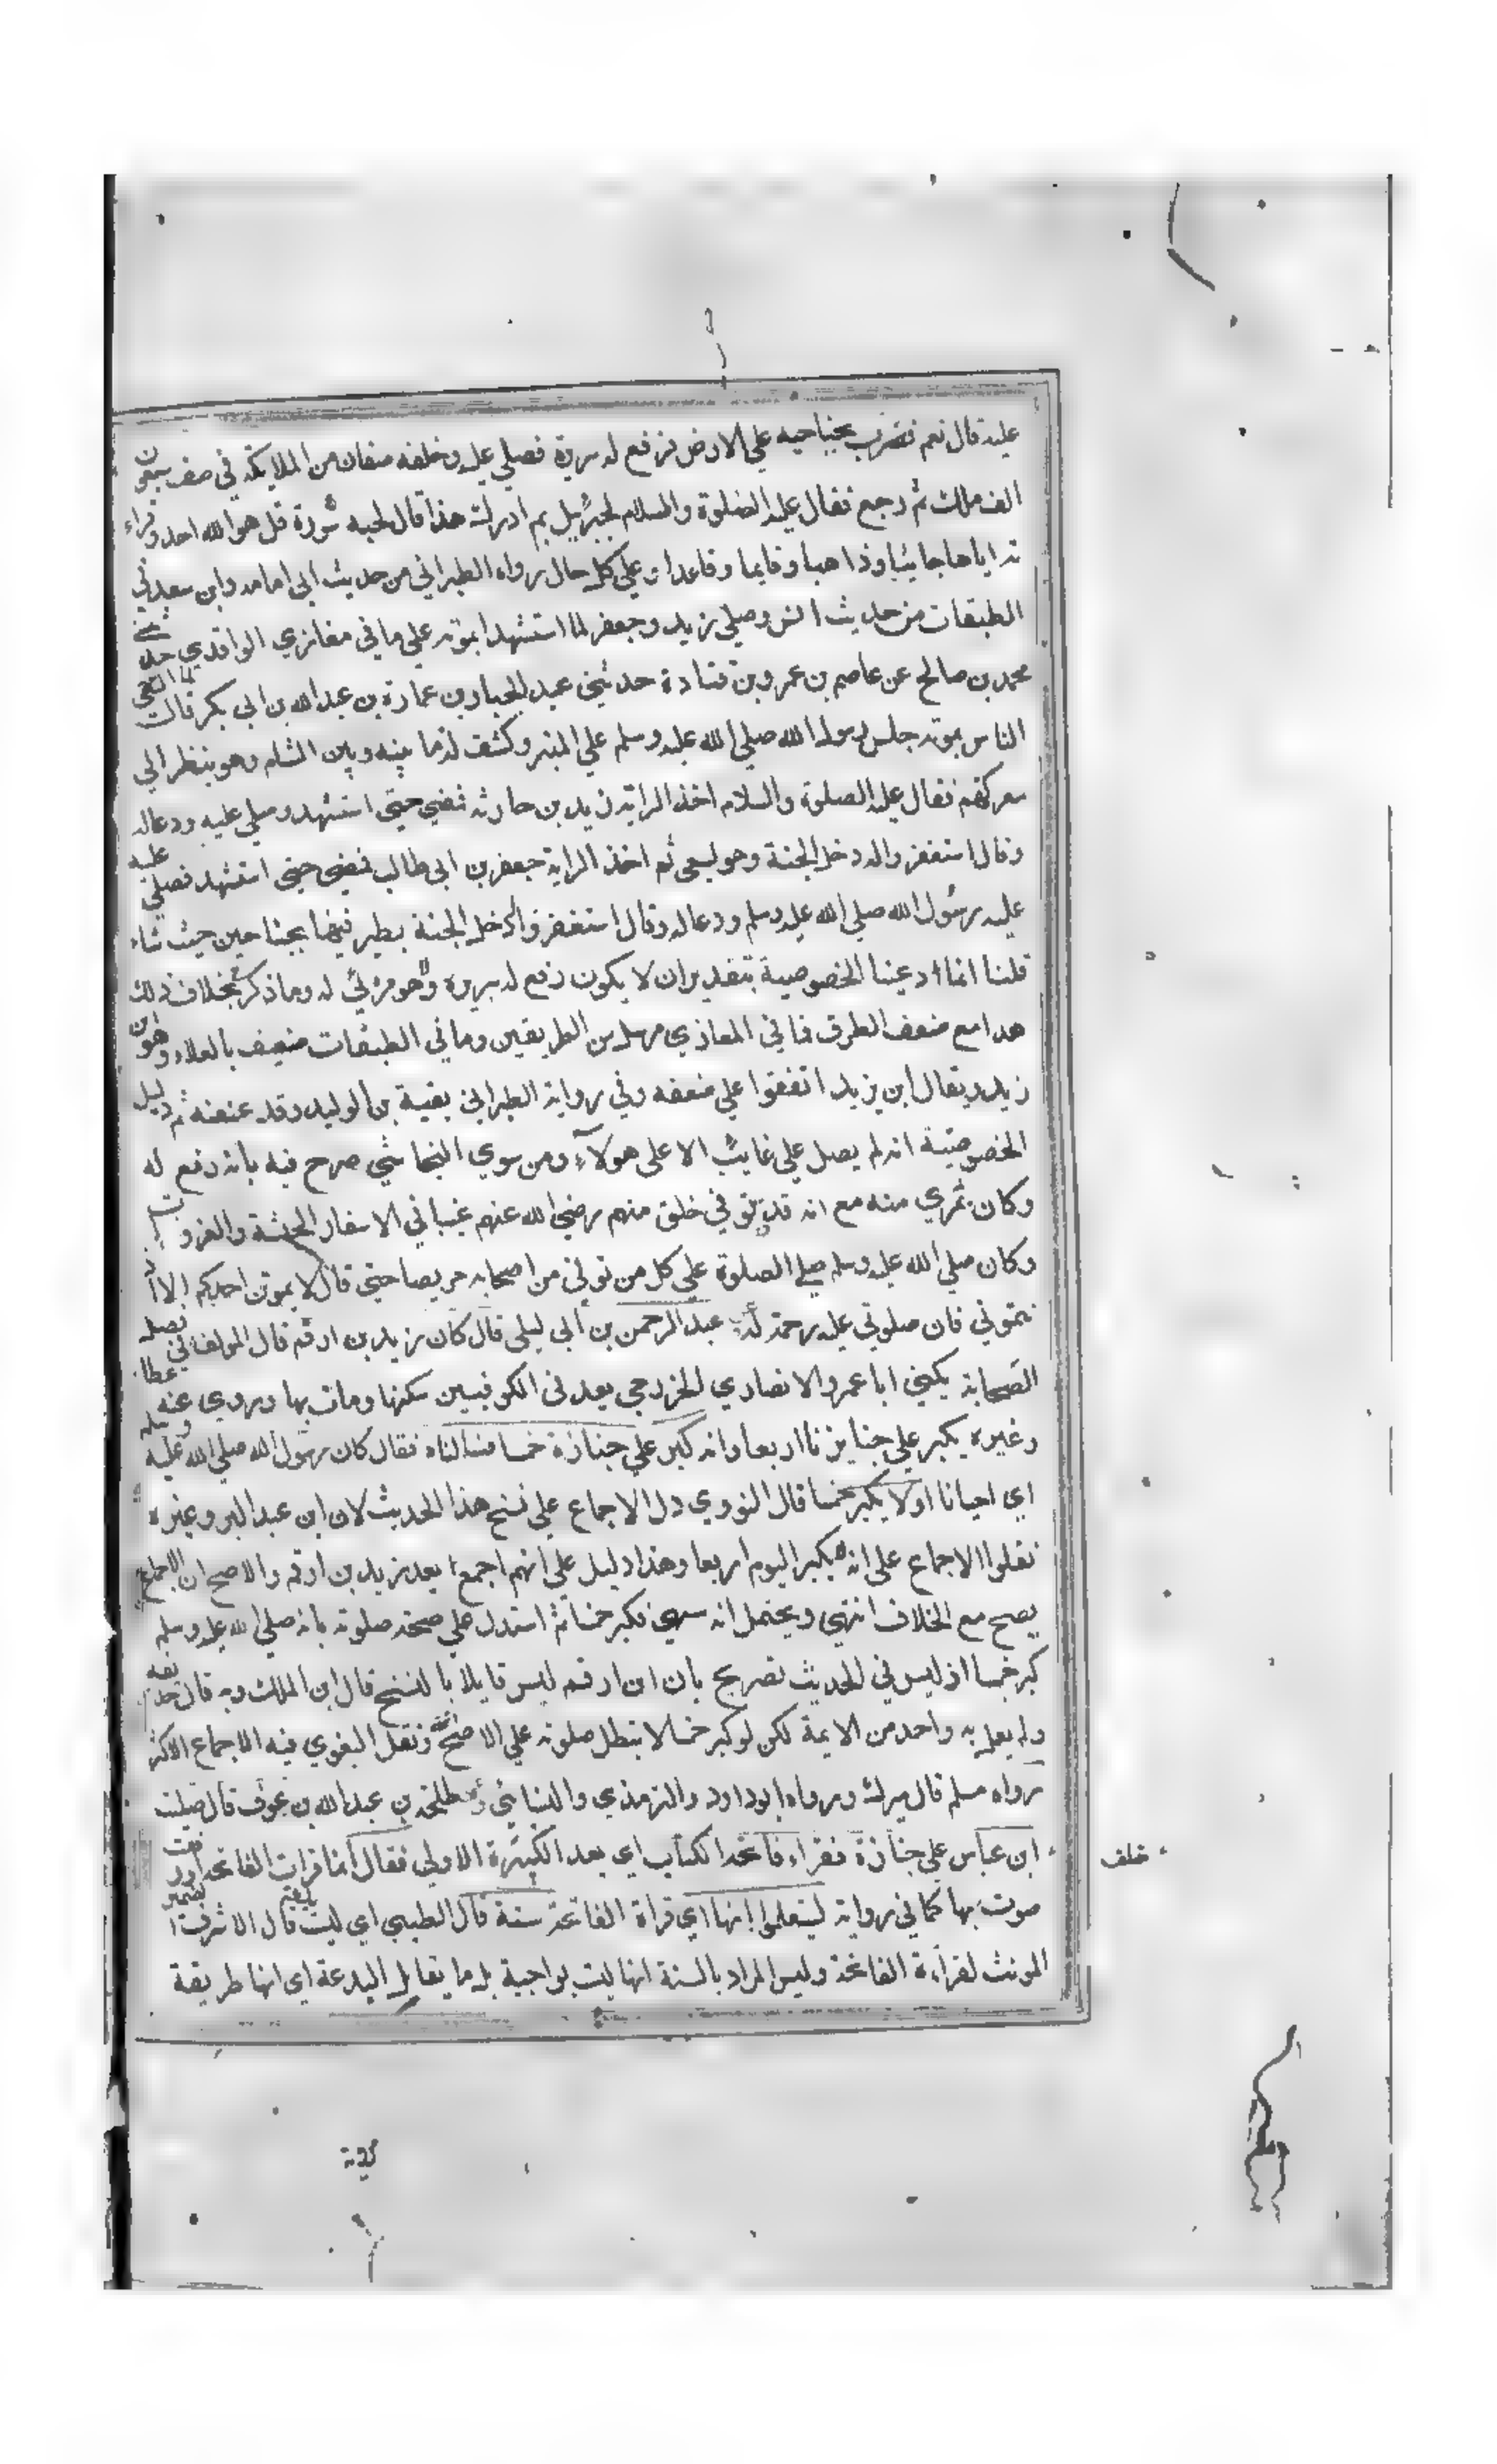 عليه قال نعم فضرب بجناحيه علي الارض فرفع له سريره فصلي عليه وخلفه صفان من الملايكة في صف سبعون
الف ملك ثم رجع فقال عليه الصلوة والسلام لجبرئيل بم ادرك هذا قال لحبه سورة قل هو الله احد وقراء
ته اياها جائيا وذاهبا وقايما وقاعدا وعلي كل حال رواه الطبراني من حديث ابي امامه وابن سعد في
الطبقات من حديث انس وصلي زيد وجعفر لما استشهدا بموته علي ما في مغازي الواقدي حدثني
محمد بن صالح عن عاصم بن عمرو بن قتادة حدثني عبد الجبار بن عمارة بن عبد الله بن ابي بكر قالت لما التقي
الناس بموته جلس رسول الله صلي الله عليه وسلم علي المنبر وكشف له ما بينه وبين الشام وهو ينظر الي
معركتهم فقال عليه الصلوة والسلام اخذ الراية زيد بن حارثه فمضي حتي استشهد وصلي عليه ودعاله
وقال استغفروا له دخل الجنة وهو يسعي ثم اخذ الراية جعفر بن ابي طالب فمضي حتي استشهد فصلي عليه
عليه رسول الله صلي الله عليه وسلم ودعاله وقال استغفروا له دخل الجنة يطير فيها بجناحين حيث شاء
قلنا انما ادعينا الخصوصية بتقدير ان لا يكون رفع له سريره ولا هو مرئي له وما ذكر بخلاف ذلك
هذا مع ضعف الطرق فما في المغازي مرسل من الطريقين وما في الطبقات ضعيف بالعلاء وهو ابن
زيد ويقال ابن يزيد اتفقوا علي ضعفه وفي رواية الطبراني بقية بن الوليد وقد عنعنه ثم دليل
الخصوصية انه لم يصل علي غايب الا على هولاء ومن سوي النجاشي صرح فيه بانه رفع له
وكان بمري منه مع انه قد توفي خلق منهم رضي الله عنهم غيبا في الاسفار الحبشة والغزوات
وكان صلي الله عليه وسلم علي الصلوة علي كل من توفي من اصحابه حريصا حتي قال لا يموتن احدكم الا اذ
نتموني فان صلوتي عليه رحمة له عبد الرحمن بن ابي ليلى قال كان زيد بن ارقم قال المولف في فصل
الصحابة يكني ابا عمرو الانصاري الخزرجي يعد في الكوفيين سكنها ومات بها وروي عنه عطا
وغيره يكبر علي جنايزنا اربعا وانه كبر علي جنازة خمسا فسالناه فقال كان رسول الله صلي الله عليه وسلم
اي احيانا اولا يكبر خمسا قال النووي دل الاجماع علي نسخ هذا الحديث لان ابن عبد البر وغيره
نقلوا الاجماع على انه لا يكبر اليوم اربعا وهذا دليل علي انهم اجمعوا بعد زيد بن ارقم والاصح ان الاجماع
يصح مع الخلاف انتهي ويحتمل انه سهي فكبر خمسا ثم استدل علي صحة صلوته بانه صلي الله عليه وسلم
كبر خمسا اذ ليس في الحديث تصريح بان ابن ارقم ليس قايلا بالنسخ قال ابن الملك وبه قال حذيفه
ولم يعمل به واحد من الايمة لكن لو كبر خمسا لا تبطل صلوته علي الاصح ونقل البغوي فيه الاجماع الاكثر
رواه مسلم قال ميرك ورواه ابو داود والترمذي والنسائي وعن طلحة بن عبد الله بن عوف قال صليت
خلف ابن عباس علي جنازة فقراء فاتحة الكتاب اي بعد التكبيرة الاولي فقال انما قرات الفاتحة او رفعت
صوت بها كما في رواية لتعلموا انها اي قراة الفاتحة سنة قال الطيبي اي ليست بدعة قال الاشرف الضمير
المونث لقراءة الفاتحة وليس المراد بالسنة انها ليست بواجبة بل ما يقابل البدعة اي انها طريقة